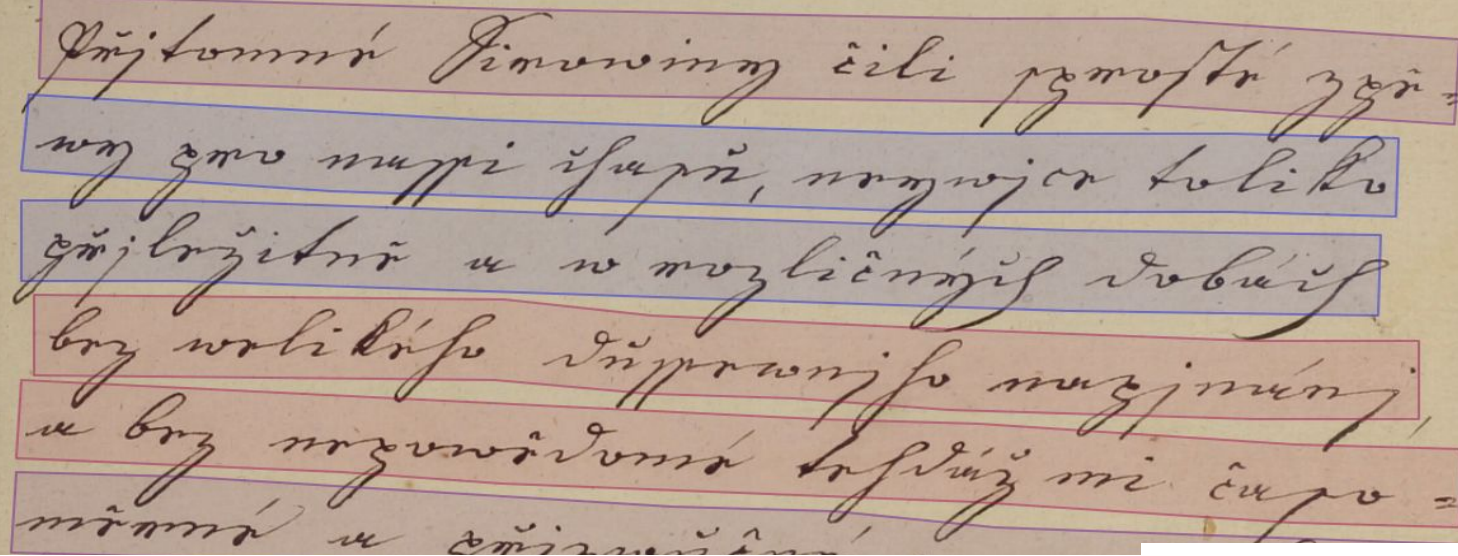 Přjtomné Sirowiny čili sprosté zpě=
wy pro nassi chasu, neywjce toliko
přjležitně a w rozličných dobách
bez welikého dussewnjho napjnánj,
a bez nepowědomé tehdáž mi časo=
měrné a